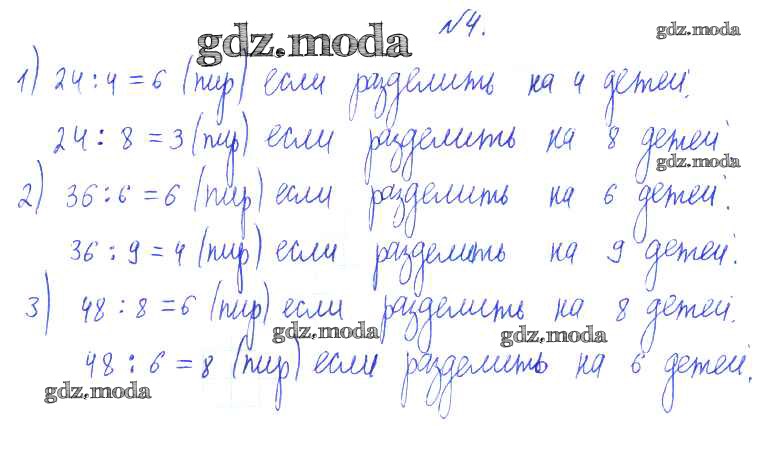 №4.
gdz.moda
gdz.moda
1) 24 : 4 = 6 (пир) если разделить на 4 детей.
24 : 8 = 3 (пир) если разделить на 8 детей
gdz.moda
2) 36 : 6 = 6 (пир) если разделить на 6 детей.
36 : 9 = 4 (пир) если разделить на 9 детей.
3) 48 : 8 = 6 (пир) если разделить на 8 детей.
gdz.moda
gdz.moda
48 : 6 = 8 (пир) если разделить на 6 детей.
gdz.moda